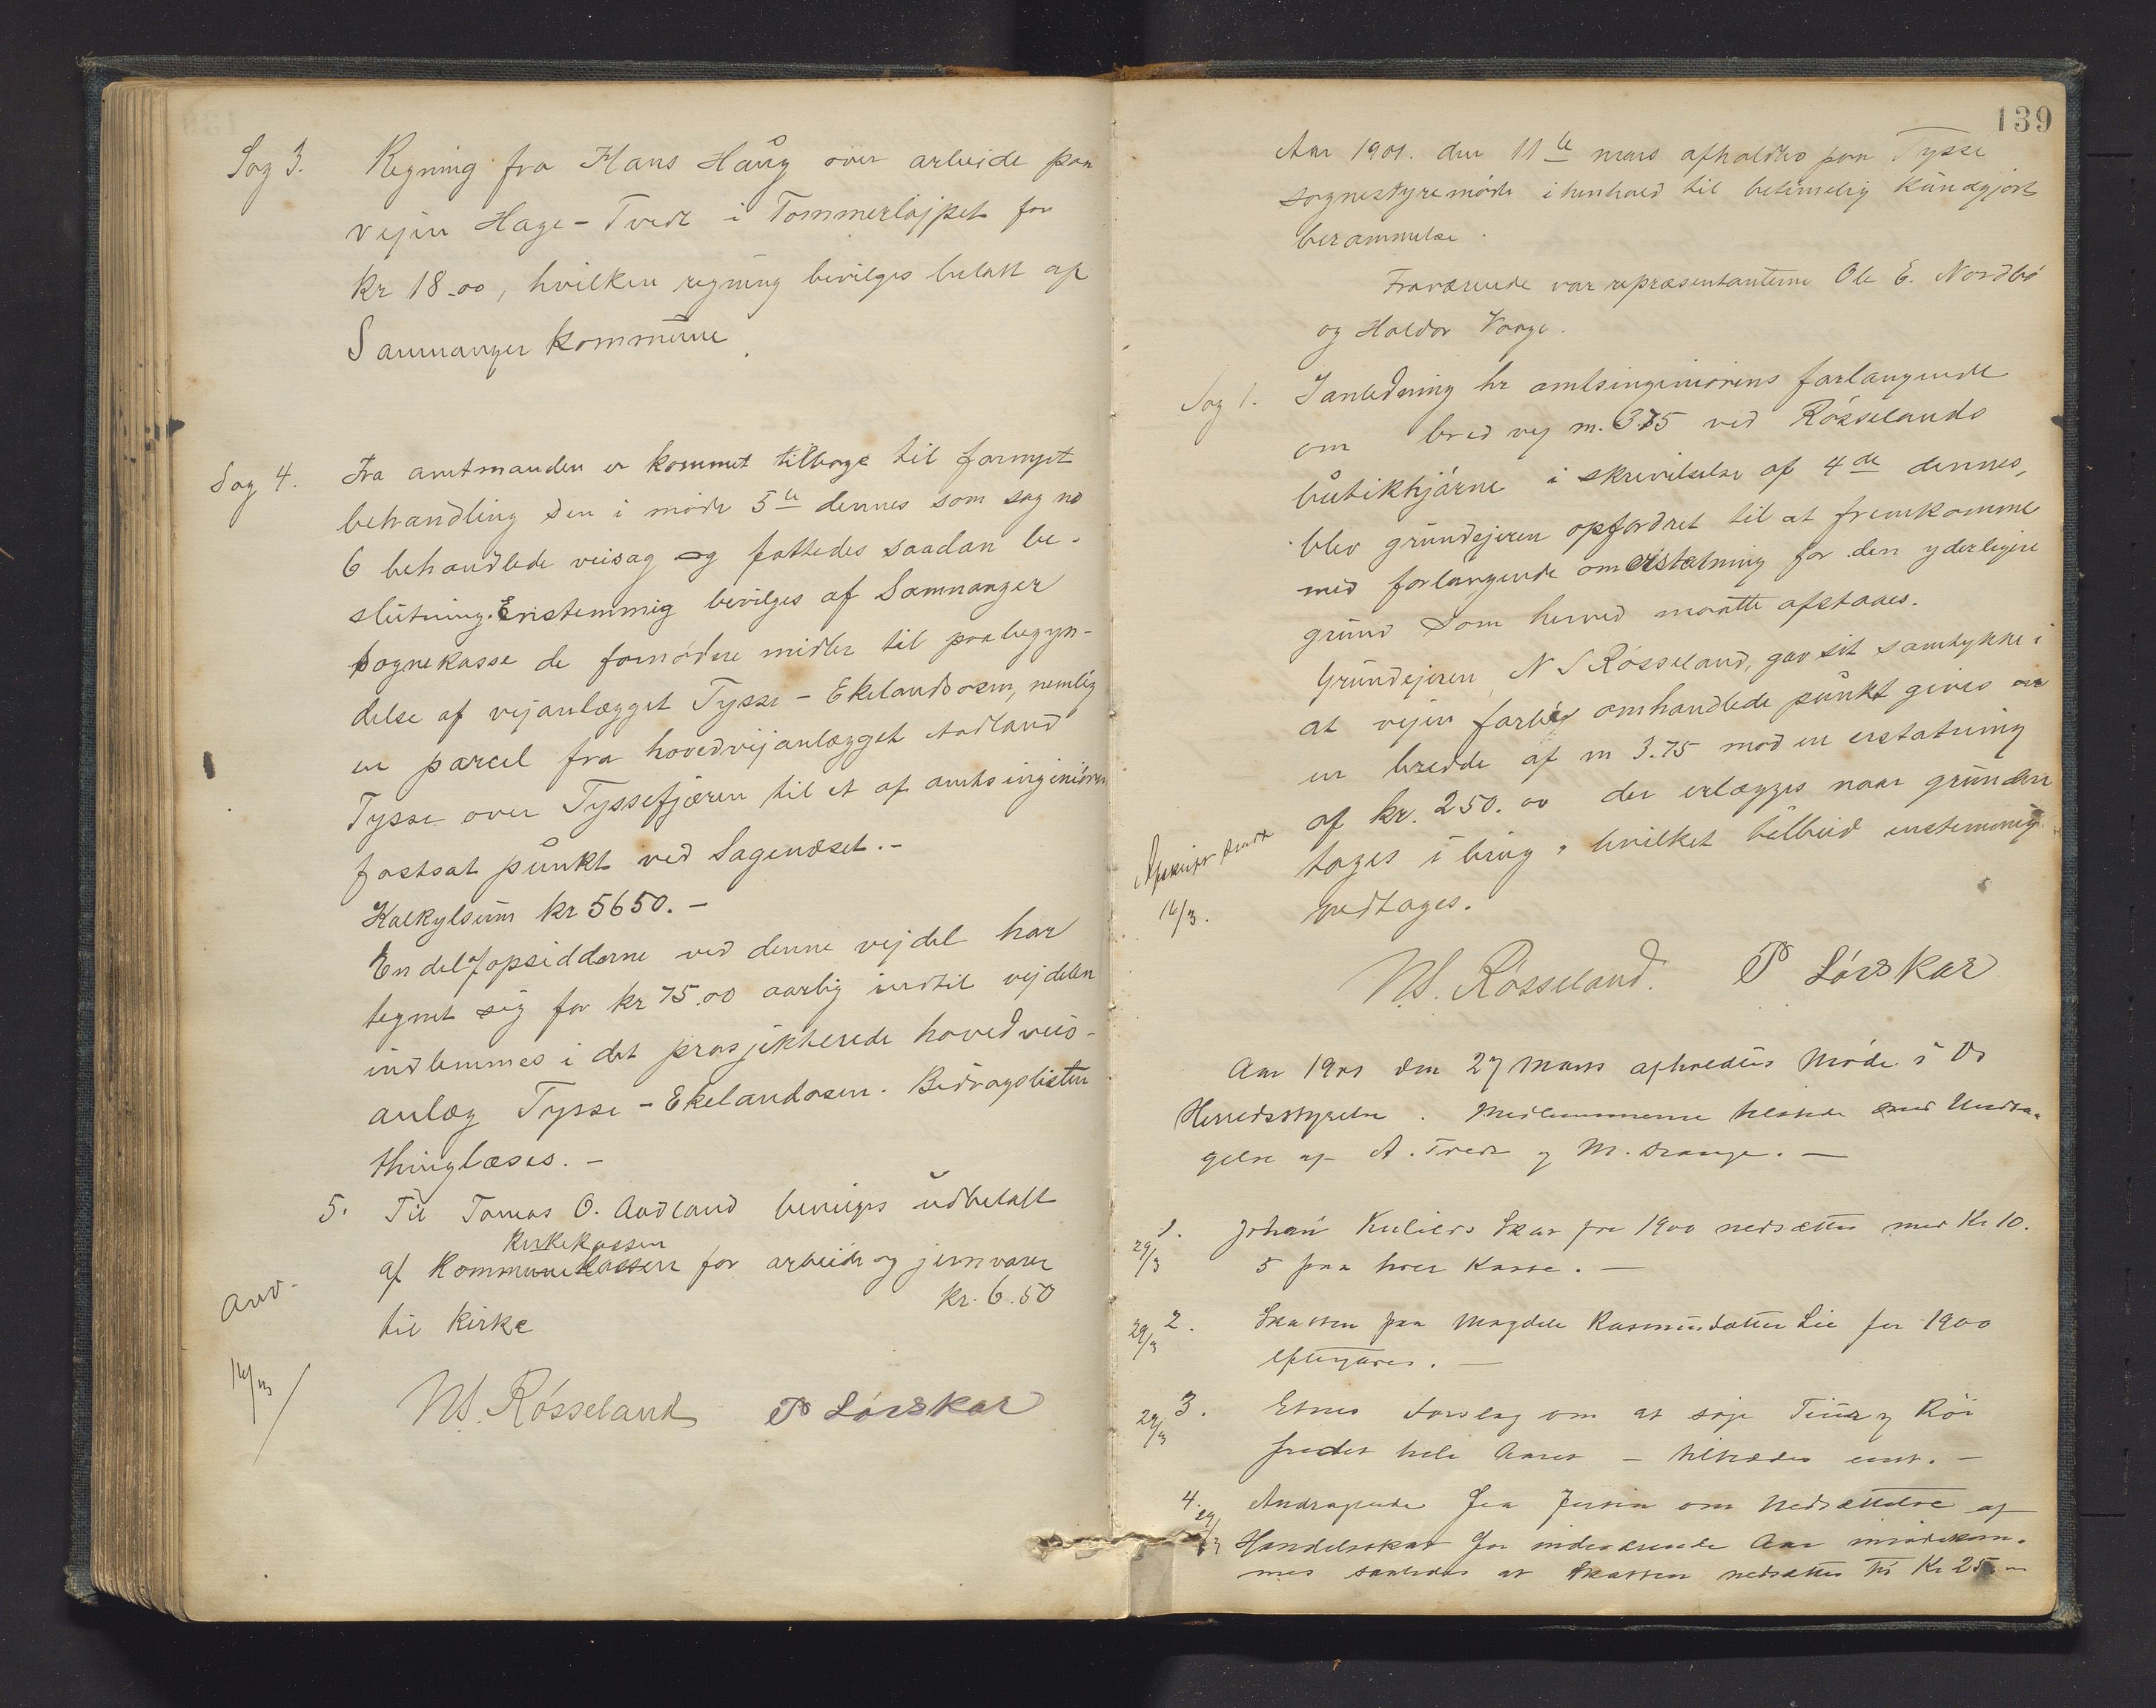 Sag 3. Regning fra Hans Haug over arbeide paa
vejen Hage - Tvedt i Tømmerløjpet for
kr 18.00, hvilken regning bevilges betalt af
Samnanger kommune.
Sag 4. Fra amtmanden er kommet tilbage til fornyet
behandling den i møde 5te dennes som sag no
6 behandlede veisag og fattedes saadan be-
slutning. Enstemmig bevilges af Samnanger
sognekasse de fornødne midler til paabegyn-
delse af vejanlægget Tysse - Ekelandsosen, nemlig
en parcel fra hovedvejanlægget Aadland
Tysse over Tyssefjæren til et af amtsingeniøren
fastsat punkt ved Sagenæset. -
Kalkylsum kr 5650. -
En del af opsidderne ved denne vejdel har
tegnet sig for kr 75.00 aarlig indtil vejdelen
indlemmes i det prosjekterede hovedveis-
anlæg Tysse - Ekelandosen. Bidragslisten
thinglæses. -
5. Til Tomas O. Aadland bevilges udbetalt
Kirkekassen
af Kommunekassen for arbeide og jernvarer
til Kirke kr. 6.50
Anv.
16/3
N.S. Røsseland P Lønskar
139
Aar 1901. den 11te mars afholdtes paa Tysse
sognestyremøde i henhold til betimelig kundgjort
berammelse.
Fraværende var repræsentanterne Ole E. Nordbø
og Haldor Vaage.
Sag 1. I anledning hr amtsingeniørens forlangende
om bred vej m. 3.75 ved Røsselands
butikhjørne i skrivelse af 4de dennes,
blev grundejeren opfordret til at fremkomme
med forlangende om erstatning for den yderligere
grund som herved maatte afstaaes.
Grundejeren N S Røsseland, gav sit samtykke i
at vejen forbi omhandlede punkt gives
en bredde af m 3.75 mod en erstatning
af kr. 250.00 der erlægges naar grunden
tages i brug, hvilket tilbud enstemmig
vedtages.
Afskrift sendt
16/3.
N.S. Røsseland. P Lønskar
Aar 1901 den 27 Mars afholdtes Møde i
Herredsstyrelsen. Medlemmerne tilstede med Undta-
gelse af A. Tvedt og M. Drange. -
1. Johan Skat for 1900 nedsættes med Kr 10.
29/3 5 paa hver Kasse. -
2. Skatten paa Magdele Rasmusdatter Lie for 1900
29/3 eftergives. -
3. Etnes Forslag om at søge Tiur og Röi
29/3 fredet hele Aaret - tiltrædes enst. -
4. Andragende fra om Nedsættelse af
29/3 Handelsskat for indeværende Aar imødekom-
mes saaledes at Skatten nedsættes til Kr 25